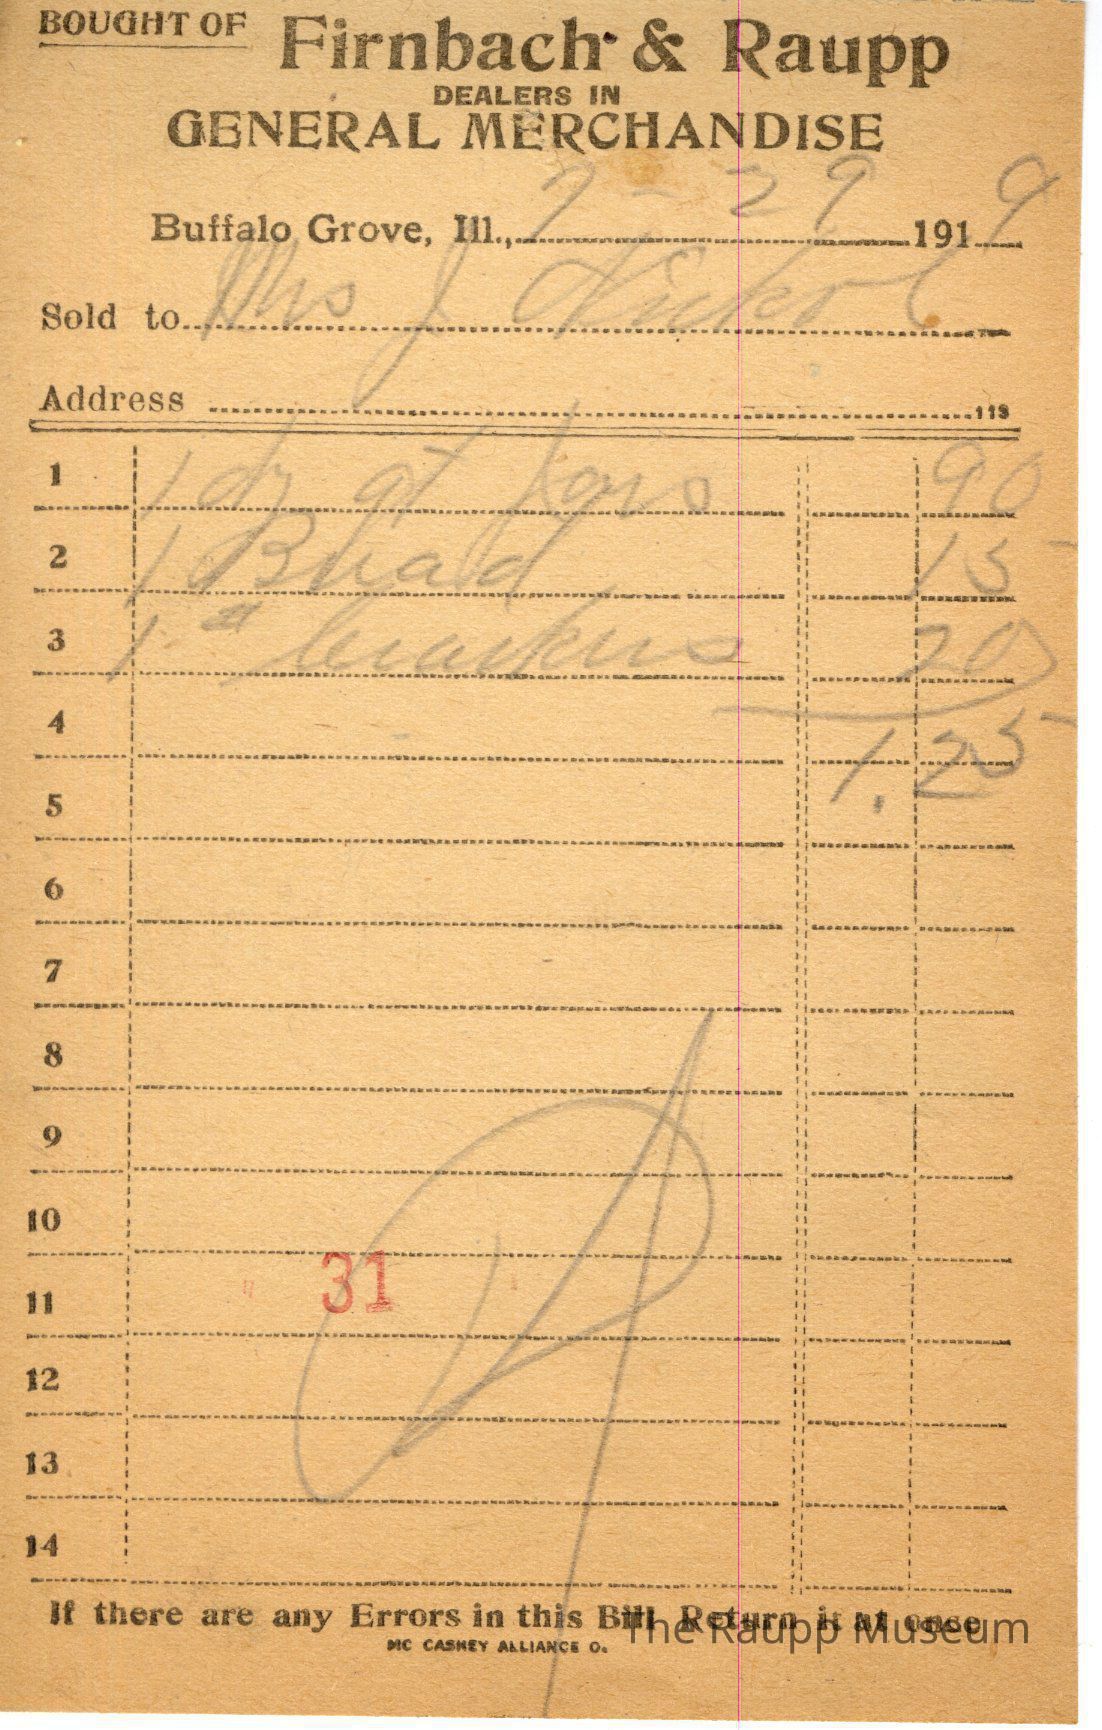 BOUGHT OF Firnbach & Raupp
DEALERS IN
GENERAL MERCHANDISE
Buffalo Grove, Ill., 7-29 1919
Sold to Mrs J Nickol
Address 113
1 1 dz qt Jars 90
2 1 Bread 15
3 1 # crackers 20
4 1.25
5
6
7
8
9
10
11 31
12
13
14
If there are any Errors in this Bill Return it at once
MC CASKEY ALLIANCE O.
The Raupp Museum